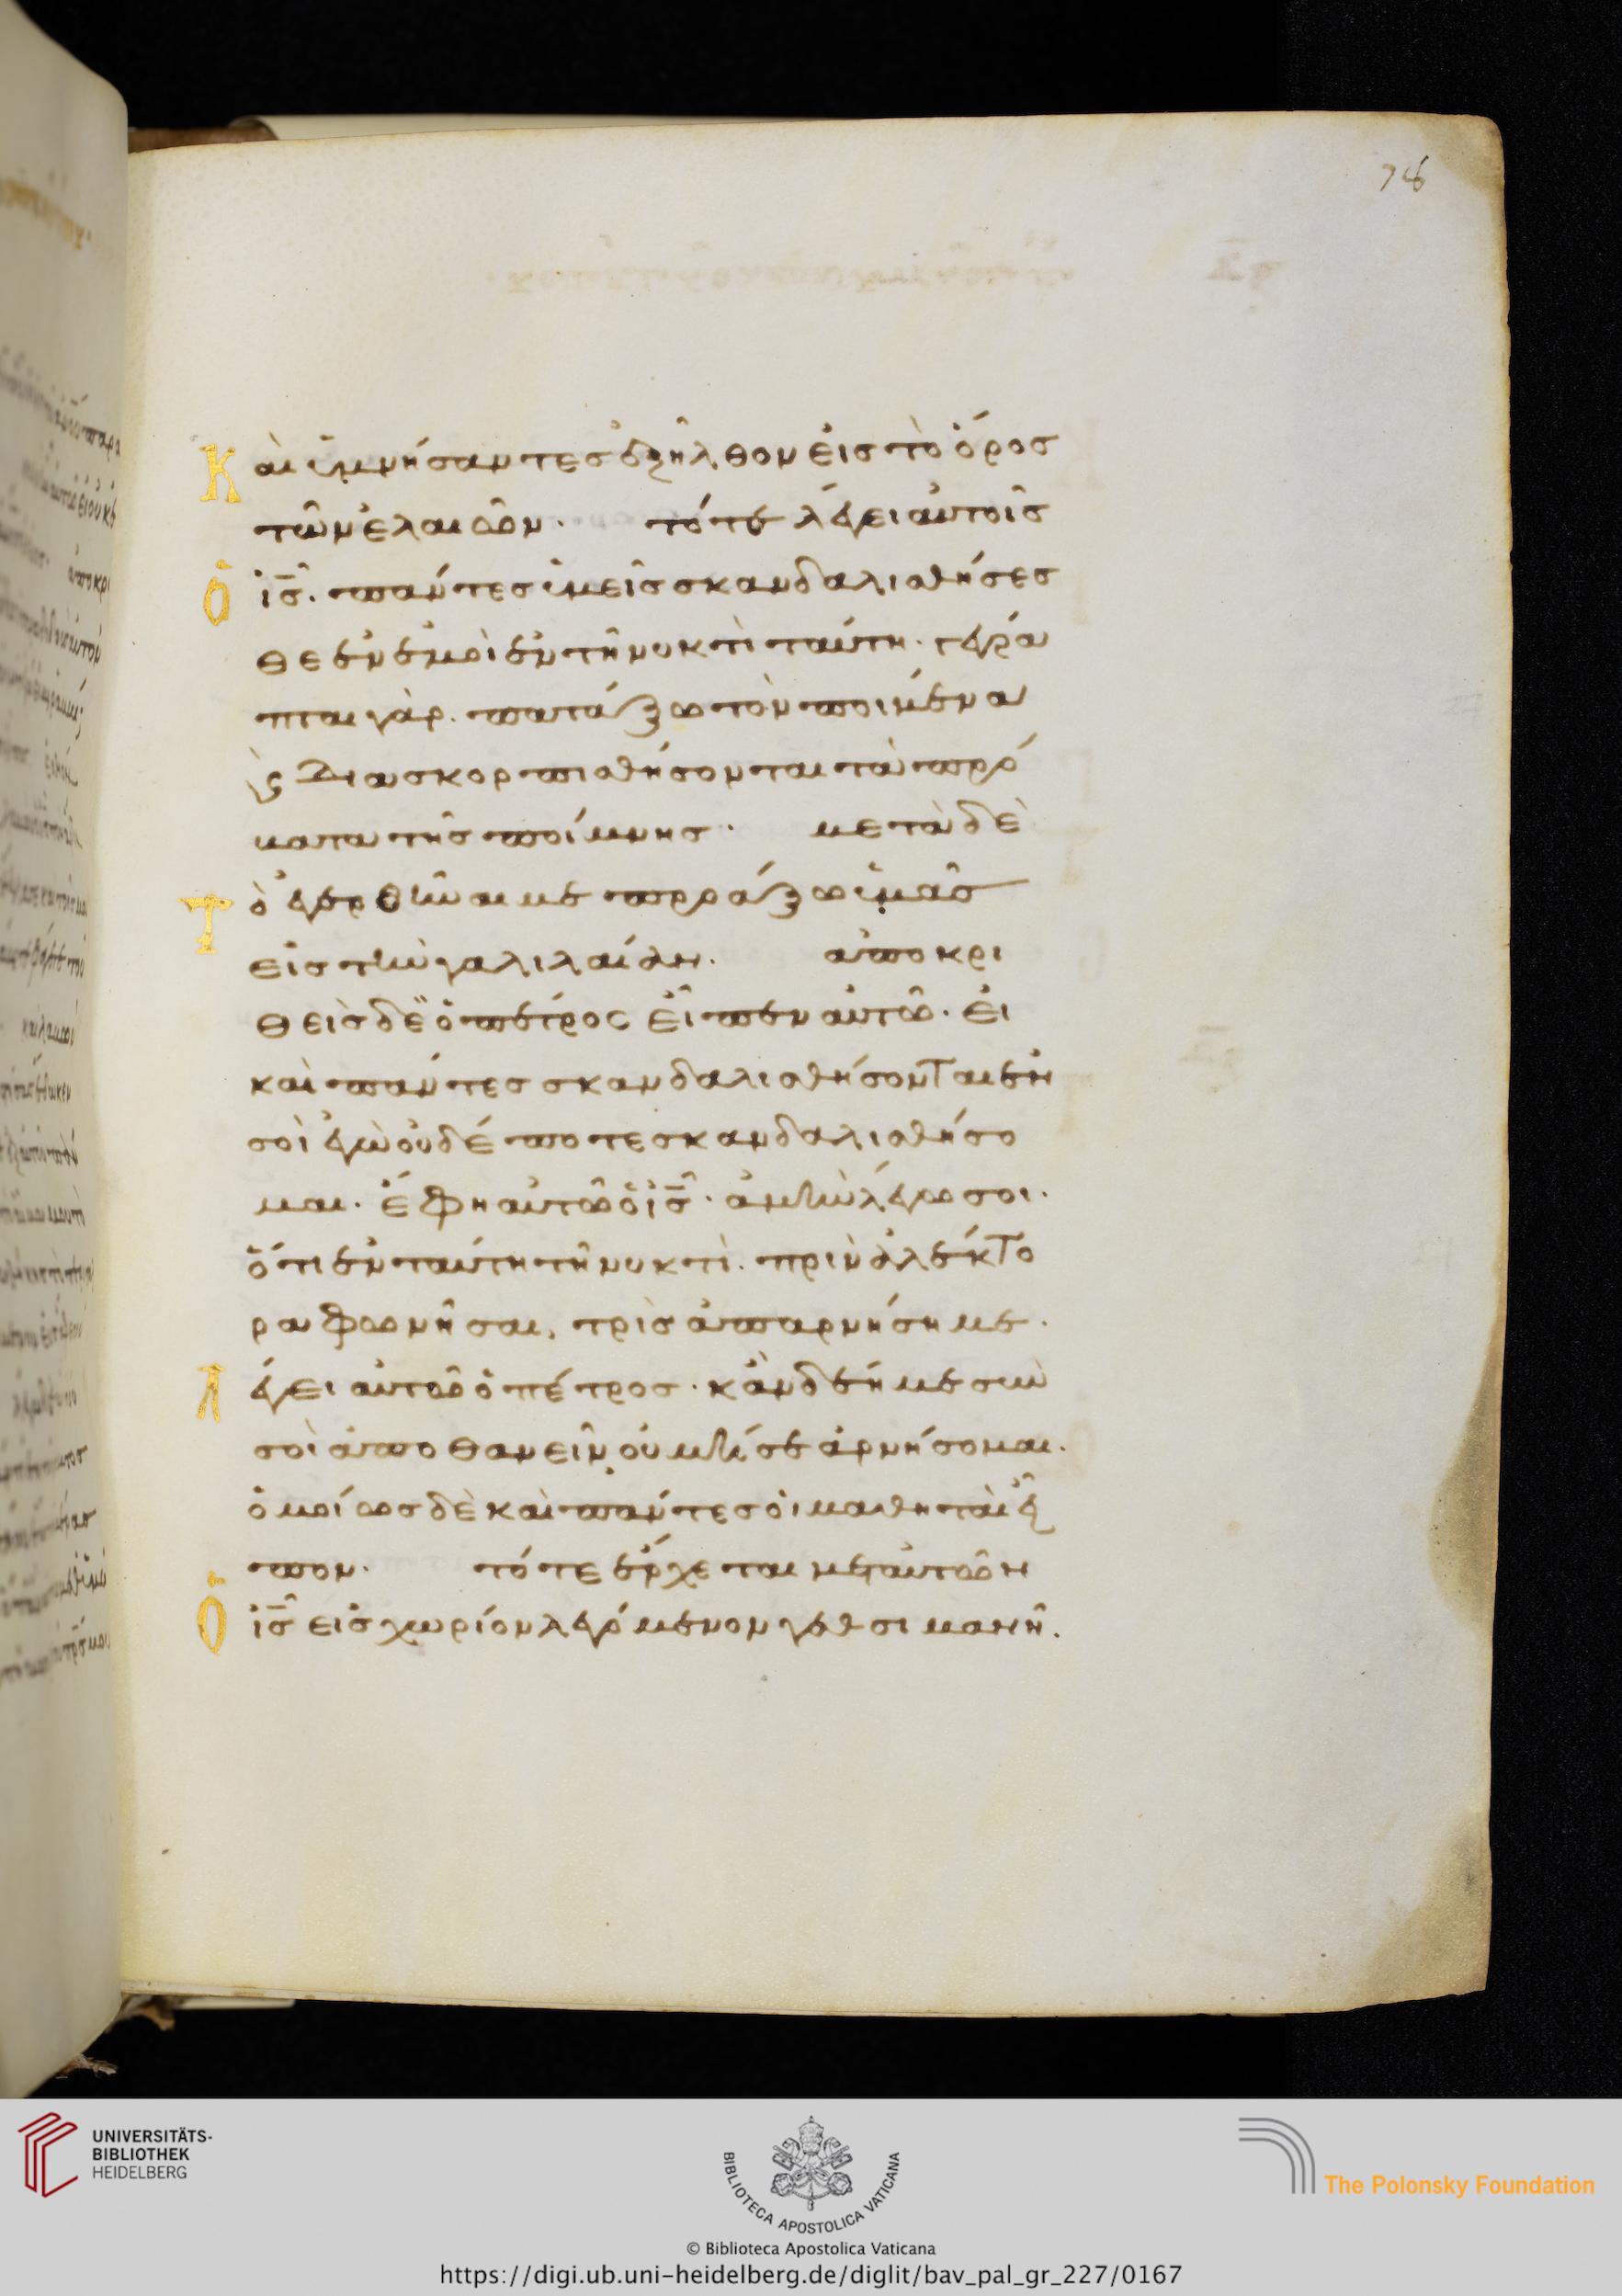 78
Καὶ ὑμνήσαντες ἐξῆλθον εἰς τὸ ὄρος
τῶν ἐλαιῶν. τότε λέγει αὐτοῖς
Ὁ ἰς̅. πάντες ὑμεῖς σκανδαλισθήσεσ
θε ἐν ἐμοὶ ἐν τῆ νυκτὶ ταύτη. γέγρα
πται γὰρ. πατάξω τὸν ποιμένα
ϗ̀ διασκορπισθήσονται τὰ πρό
βατα τῆς ποίμνης. μετὰ δὲ
Τὸ ἐγερθῆναι με προάξω ὑμᾶς
εἰς τὴν γαλιλαίαν. ἀποκρι
θεὶς δὲ ὁ πέτρος εἶπεν αὐτῶ. εἰ
καὶ πάντες σκανδαλισθήσονται ἐν
σοὶ ἐγὼ οὐδέποτε σκανδαλισθήσο
μαι. ἔφη αὐτῶ ὁ ἰς̅. ἀμὴν λέγω σοι.
ὅτι ἐν ταύτη τῆ νυκτὶ. πρὶν ἀλέκτο
ρα φωνῆσαι, τρὶς ἀπαρνήση με.
Λέγει αὐτῶ ὁ πέτρος. κἂν δέη με σὺν
σοὶ ἀποθανεῖν οὐ μή σε ἀρνήσομαι.
ὁμοίως δὲ καὶ πάντες οἱ μαθηταὶ εἶ
πον. τότε ἔρχεται μετ' αὐτῶν
Ὁ ἰς̅ εἰς χωρίον λεγόμενον γεθσιμανῆ.
UNIVERSITÄTS-
BIBLIOTHEK
HEIDELBERG
BIBLIOTECA APOSTOLICA VATICANA
The Polonsky Foundation
© Biblioteca Apostolica Vaticana
https://digi.ub.uni-heidelberg.de/diglit/bav_pal_gr_227/0167